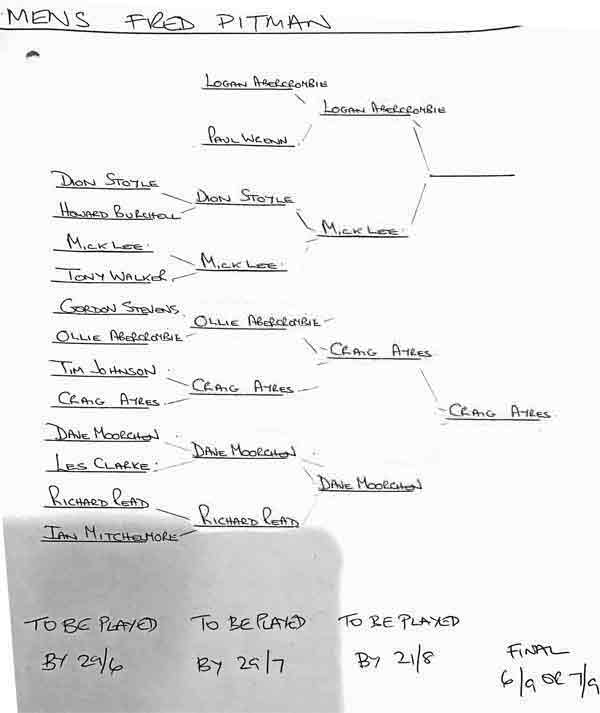 MENS FRED PITMAN
LOGAN ABERCROMBIE
LOGAN ABERCROMBIE
PAUL WRENN
DION STOYLE
DION STOYLE
HOWARD BURCHELL
MICK LEE
MICK LEE
MICK LEE
TONY WALKER
GORDON STEVENS
OLLIE ABERCROMBIE
OLLIE ABERCROMBIE
CRAIG AYRES
TIM JOHNSON
CRAIG AYRES
CRAIG AYRES
CRAIG AYRES
DAVE MOORCHEN
DAVE MOORCHEN
LES CLARKE
DAVE MOORCHEN
RICHARD READ
RICHARD READ
IAN MITCHELMORE
TO BE PLAYED
BY 29/6
TO BE PLAYED
BY 29/7
TO BE PLAYED
BY 21/8
FINAL
6/9 OR 7/9